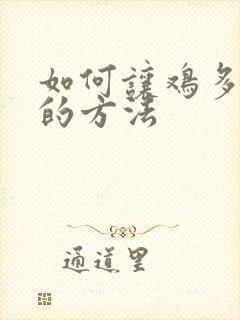 如何让鸡多
的方法
通道里